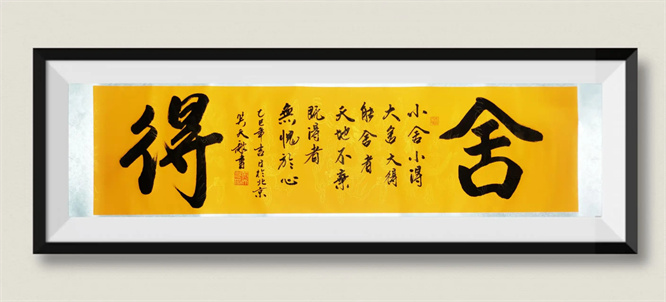 舍
小舍小得
大舍大得
能舍者
天地不棄
既得者
無愧於心
乙巳年吉日於北京
吴天敏書
得